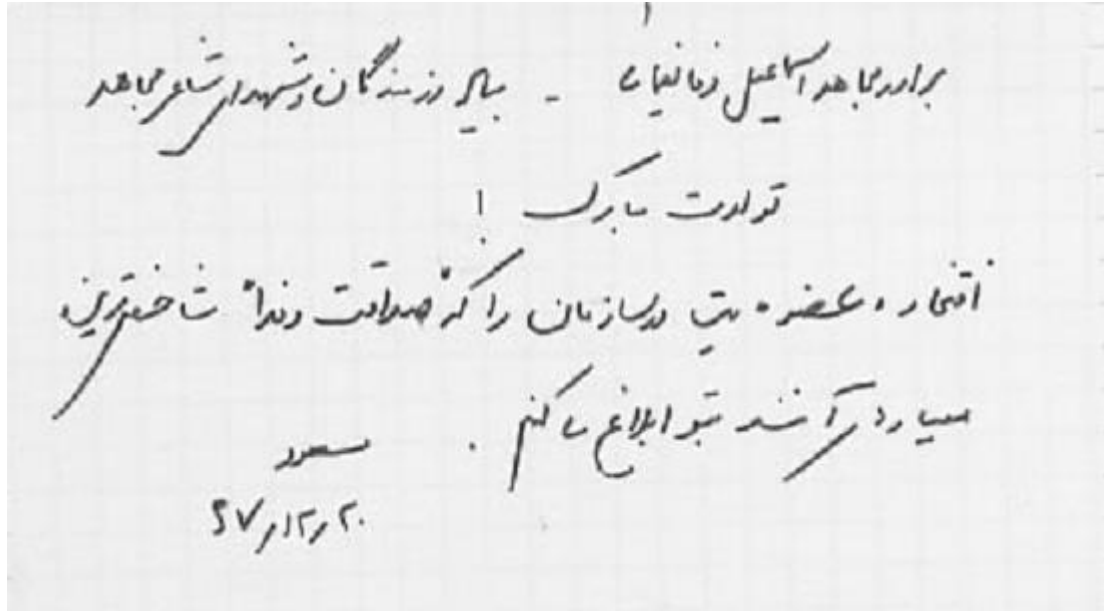 برادر مجاهد اسماعیل وفا یغمائی - بیاد رزمندگان و شهدای شاعر مجاهد
تولدت مبارک !
افتخار عضویت در سازمان را که "صداقت و فدا" شاخص‌ترین
معیارهای آنند بتو ابلاغ می کنم .
مسعود